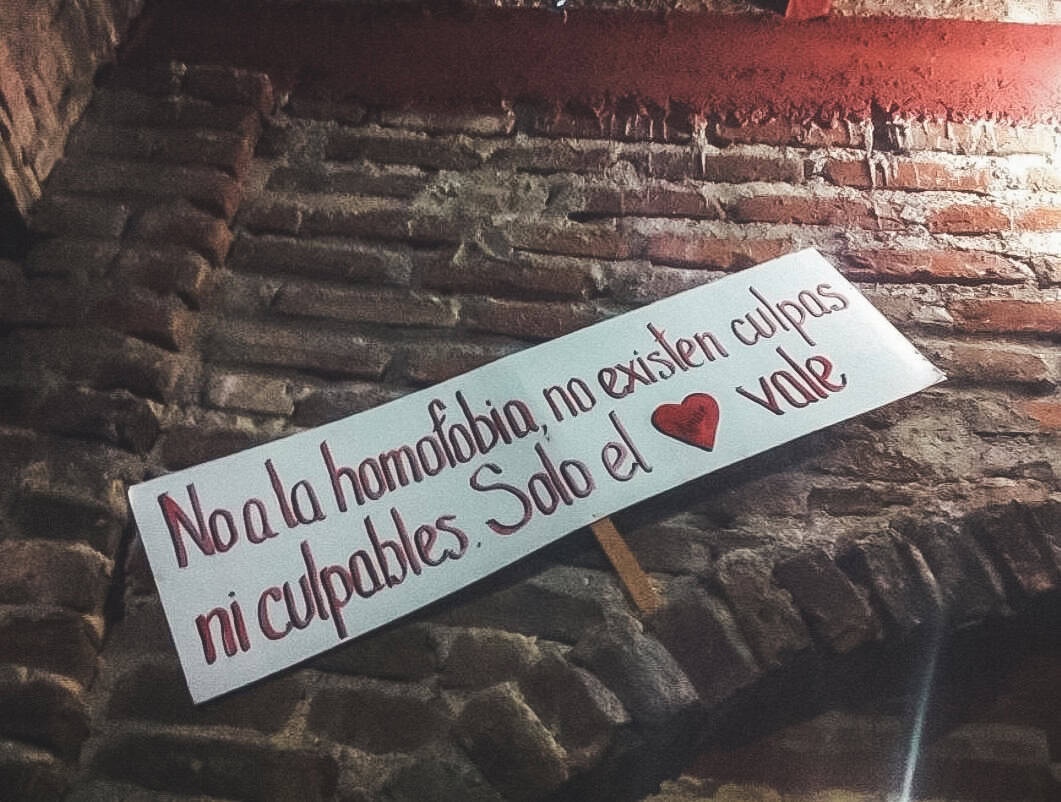 No a la homofobia, no existen culpas
ni culpables. Solo el ❤ vale